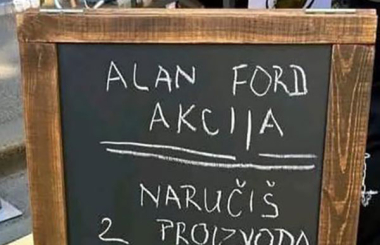 ALAN FORD
AKCIJA
NARUČIŠ
2 PROIZVODA